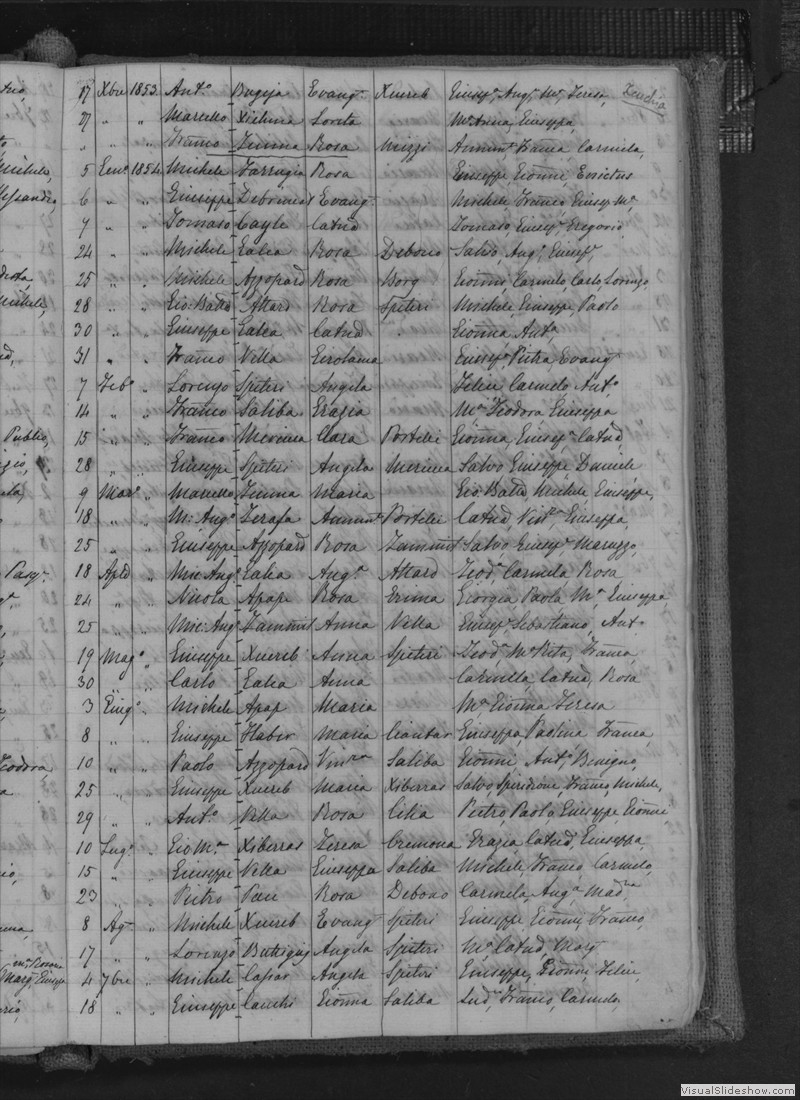 17 Xbre 1853 Ant.o Bugeja Evang.a Xuereb Giusep.e, Aug.o, M.a, Teresa, Zenchia
27 " " Marcello Xicluna Loreta M.a Anna, Giuseppa,
" " " Franco Zimma Rosa Mizzi Annun.ta, Franca, Carmela,
5 Gen.o 1854 Michele Farrugia Rosa Giuseppe, Gionni,
6 " " Giuseppe Debrincat Evang.a Michele, Franco, Giusep. M.a
7 " " Tomaso Cayle Catnd Tomaso, Giusep.e, Gregorio
24 " " Michele Galea Rosa Debono Salvo, Aug.o, Giusep.e,
25 " " Michele Azzopard Rosa Borg Gionni, Carmelo, Carlo, Lorenzo,
28 " " Gio: Batta Attard Rosa Spiteri Michele, Giuseppe, Paolo
30 " " Giuseppe Galea Catnd Gionna, Ant.a,
31 " " Franco Vella Girolama Giusep.e, Pietra, Evang.a
7 Feb.o " Lorenzo Spiteri Angela Felice, Carmelo, Ant.o,
14 " " Franco Saliba Grazia M.a Teodora, Giuseppa
15 " " Franco Mercieca Clara Portelli Gionna, Giusep.a, Catnd,
28 " " Giuseppe Spiteri Angela Mercieca Salvo, Giuseppe, Daniele
9 Mar.o " Marcello Zimma Maria Gio: Batta, Michele, Giuseppe,
18 " " M: Aug.o Zerafa Annun.ta Portelli Catnd, Giuseppa,
25 " " Giuseppe Azzopard Rosa Zammit Salvo, Giusep.e, Maruzzo,
18 Aple " Mic: Ang.o Galea Aug.a Attard Teod.a, Carmela, Rosa
24 " " Nicola Apap Rosa Grima Giorgia, Paola, M.a, Giuseppa,
25 " " Mic: Ang.o Zammit Anna Vella Giusep.e, Sebastiano, Ant.o
19 Mag.o " Giuseppe Xuereb Anna Spiteri Teod.a, M.a Rita, Franca,
30 " " Carlo Galea Anna Carmela, Catnd, Rosa
3 Giug.o " Michele Apap Maria M.a, Gionna, Teresa
8 " " Giuseppe Haber Maria Ciantar Giuseppa, Paolina, Franca,
10 " " Paolo Azzopard Vin.za Saliba Gionni, Ant.o, Benigno,
25 " " Giuseppe Xuereb Maria Xiberras Salvo, Spiridione, Franco, Michele,
29 " " Ant.o Vella Rosa Cilia Pietro Paolo, Giuseppe, Gionni,
10 Lug.o " Gio M.a Xiberras Teresa Cremona Grazia, Catnd, Giuseppa,
15 " " Giuseppe Vella Giuseppa Saliba Michele, Franco, Carmelo,
23 " " Pietro Pace Rosa Debono Carmela, Aug.a, Mad.na
8 Ag.o " Michele Xuereb Evang.a Spiteri Giuseppe, Gionni, Franco,
17 " " Lorenzo Buttigieg Angela Spiteri M.a, Catnd, Marg.a
4 7bre " Michele Cassar Angela Spiteri Giuseppe, Gionni, Felice,
18 " " Giuseppe Cauchi Gionna Saliba Lud.o, Franco, Carmelo,
VisualSlideshow.com